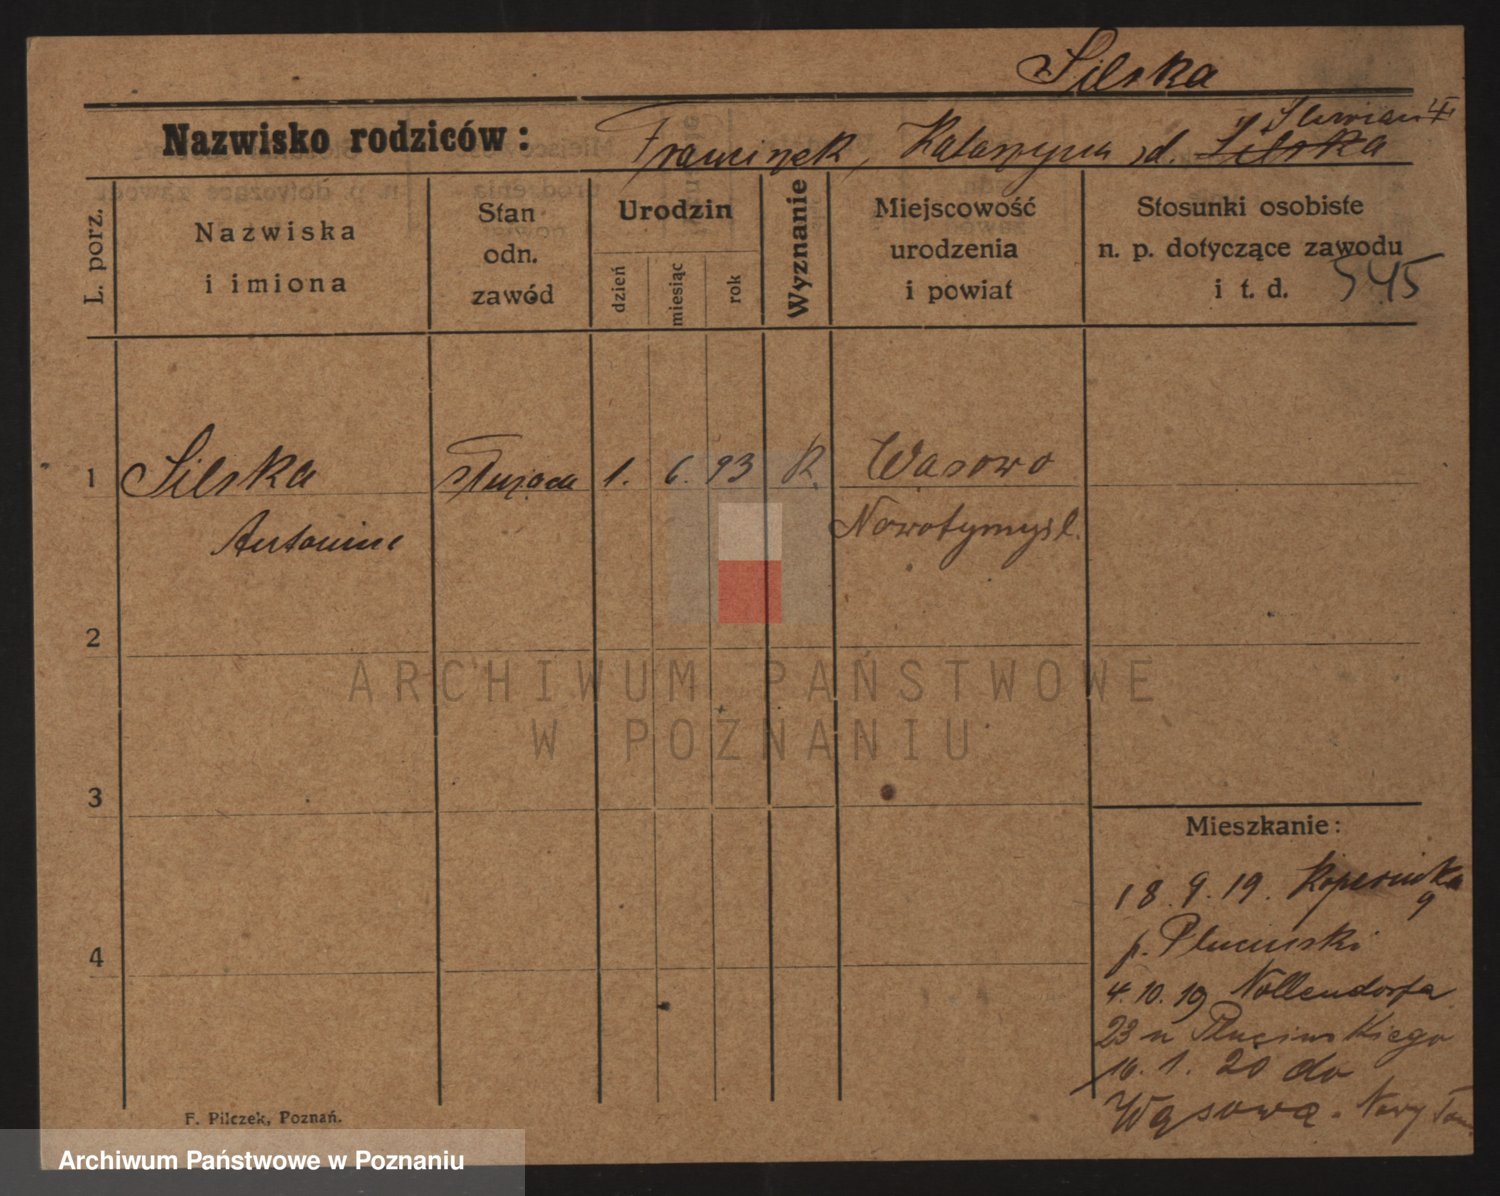 Silska
Nazwisko rodziców: Franciszek, Katarzyna, d. Silska
L. porz.
Nazwiska
i imiona
Stan
odn.
zawód
Urodzin
dzień
miesiąc
rok
Wyznanie
Miejscowość
urodzenia
i powiat
Stosunki osobiste
n. p. dotyczące zawodu
i t. d. 545
1 Silska służąca 1. 6. 93 R. Wąsowo
Antonina Nowotymysl.
2
ARCHIWUM PAŃSTWOWE
W POZNANIU
3
Mieszkanie:
18. 9. 19. Kopernika
9
p. Pluciński
4
4. 10. 19 Nollendorfa
23 u Plucińskiego
16. 1. 20 do
Wąsowa. Nowy Tom
F. Pilczek, Poznań.
Archiwum Państwowe w Poznaniu